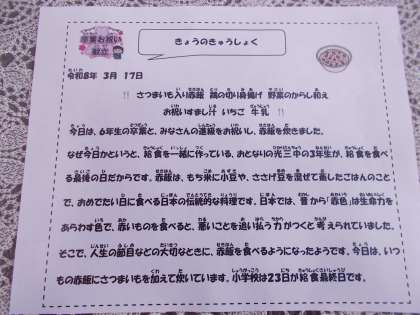 卒業お祝い
献立
きょうのきゅうしょく
令和8年 3月 17日
!! さつまいも入り赤飯 鶏の切り身揚げ 野菜のからし和え
お祝いすまし汁 いちご 牛乳 !!
今日は、6年生の卒業と、みなさんの進級をお祝いし、赤飯を炊きました。
なぜ今日かというと、給食を一緒に作っている、おとなりの光三中の3年生が、給食を食べ
る最後の日だからです。赤飯は、もち米に小豆や、ささげ豆を混ぜて蒸したごはんのこと
で、おめでたい日に食べる日本の伝統的な料理です。日本では、昔から「赤色」は生命力を
あらわす色で、赤いものを食べると、悪いことを追い払う力がつくと考えられていました。
そこで、人生の節目などの大切なときに、赤飯を食べるようになったようです。今日は、いつ
もの赤飯にさつまいもを加えて炊いています。小学校は23日が給食最終日です。